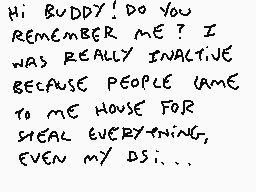 Hi BUDDY! DO YOU
REMEMBER ME? I
WAS REALLY INACTIVE
BECAUSE PEOPLE CAME
TO ME HOUSE FOR
STEAL EVERYTHING,
EVEN MY DSi...